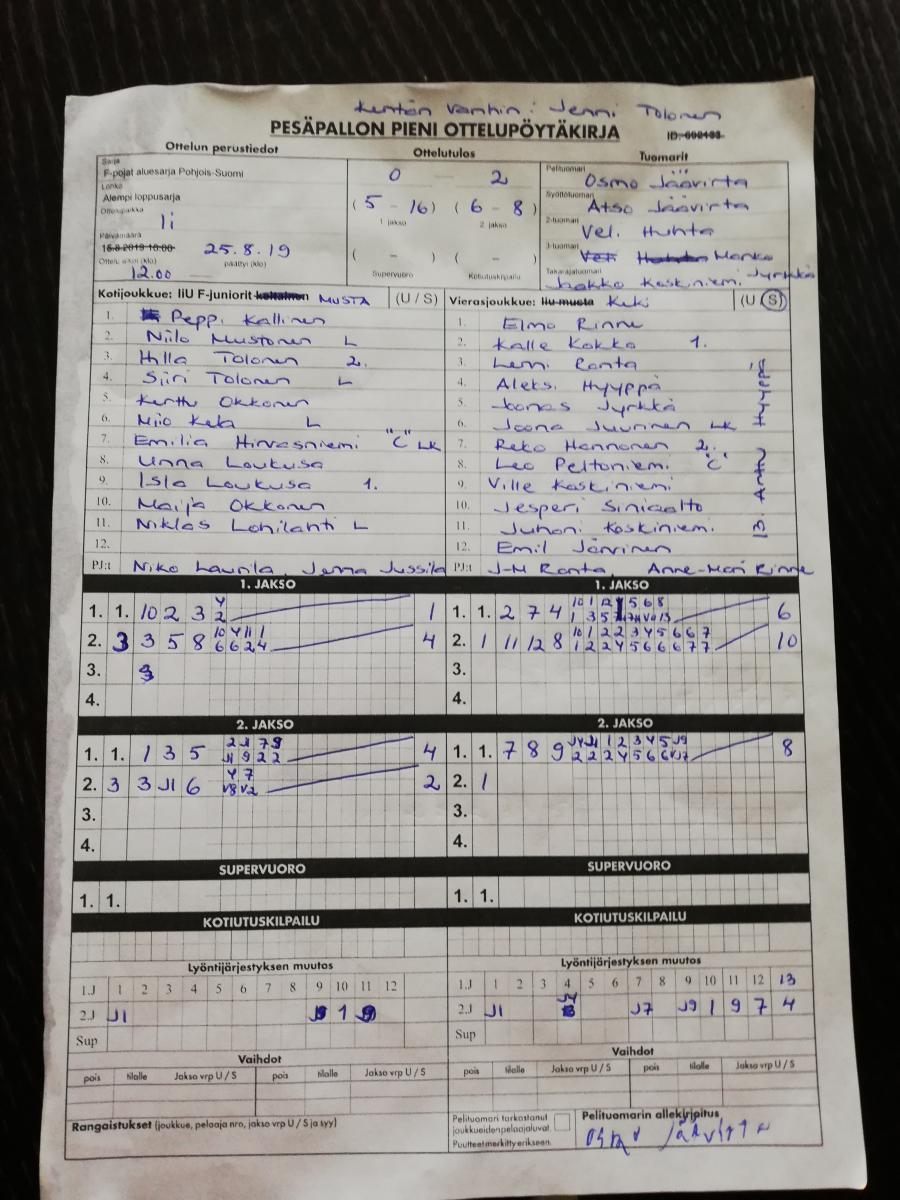 Kentän vanhin: Jenni Tolonen
PESÄPALLON PIENI OTTELUPÖYTÄKIRJA
Ottelun perustiedot Ottelutulos Tuomarit
Sarja
F-pojat aluesarja Pohjois-Suomi
Lohko
Alempi loppusarja
Ottelupaikka
Ii
Päivämäärä
25.8.19
12.00 päättyi (klo)
0 - 2
(5 - 16) (6 - 8)
1. jakso 2. jakso
( - ) ( - )
Supervuoro Kotiutuskilpailu
Pelituomari
Osmo Jäävirta
Syöttötuomari
Atso Jäävirta
2-tuomari
Vel. Huhta
3-tuomari
Marko Jyrkkä
Takarajatuomari
Jaakko Koskiniemi
Kotijoukkue: IiU F-juniorit keltainen MUSTA (U / S)
1. Peppi Kallinen
2. Niilo Mustonen L
3. Hilla Tolonen 2.
4. Siiri Tolonen L
5. Kerttu Okkonen
6. Miio Kela L
7. Emilia Hirvasniemi "C" LK
8. Unna Loukusa
9. Isla Loukusa 1.
10. Maija Okkonen
11. Niklas Lohilahti L
12.
PJ:t Niko Laurila, Jenna Jussila
Vierasjoukkue: IiU musta Keki (U / S)
1. Elmo Rinne
2. Kalle Kokko 1.
3. Lenni Ranta
4. Aleksi Hyyppä
5. Joonas Jyrkkä
6. Joona Juurinen LK
7. Reko Hannonen 2.
8. Leo Peltoniemi "C"
9. Ville Koskiniemi
10. Jesperi Siniaalto
11. Juhani Koskiniemi
12. Emil Järvinen
13. Anttu Hyyppä
PJ:t J-M Ranta, Anne-Mari Rinne
1. JAKSO
1. 1. 10 2 3 1
2. 3 3 5 8 4
3.
4.
1. JAKSO
1. 1. 2 7 4 6
2. 1 11 12 8 10
3.
4.
2. JAKSO
1. 1. 1 3 5 4
2. 3 3 J1 6 2
3.
4.
2. JAKSO
1. 1. 7 8 9 8
2. 1
3.
4.
SUPERVUORO
1. 1.
SUPERVUORO
1. 1.
KOTIUTUSKILPAILU
KOTIUTUSKILPAILU
Lyöntijärjestyksen muutos
1.J 1 2 3 4 5 6 7 8 9 10 11 12
2.J J1 1
Sup
Lyöntijärjestyksen muutos
1.J 1 2 3 4 5 6 7 8 9 10 11 12 13
2.J J1 J4 J7 J9 1 9 7 4
Sup
Vaihdot
pois tilalle Jakso vrp U / S pois tilalle Jakso vrp U / S
Vaihdot
pois tilalle Jakso vrp U / S pois tilalle Jakso vrp U / S
Rangaistukset (joukkue, pelaaja nro, jakso vrp U / S ja syy)
Pelituomari tarkastanut
joukkueidenpelaajaluvat.
Puutteet merkitty erikseen.
Pelituomarin allekirjoitus